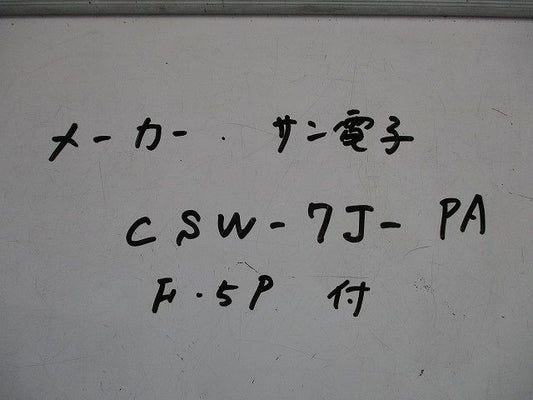 メーカー. サン電子
CSW-7J-PA
F.5P 付